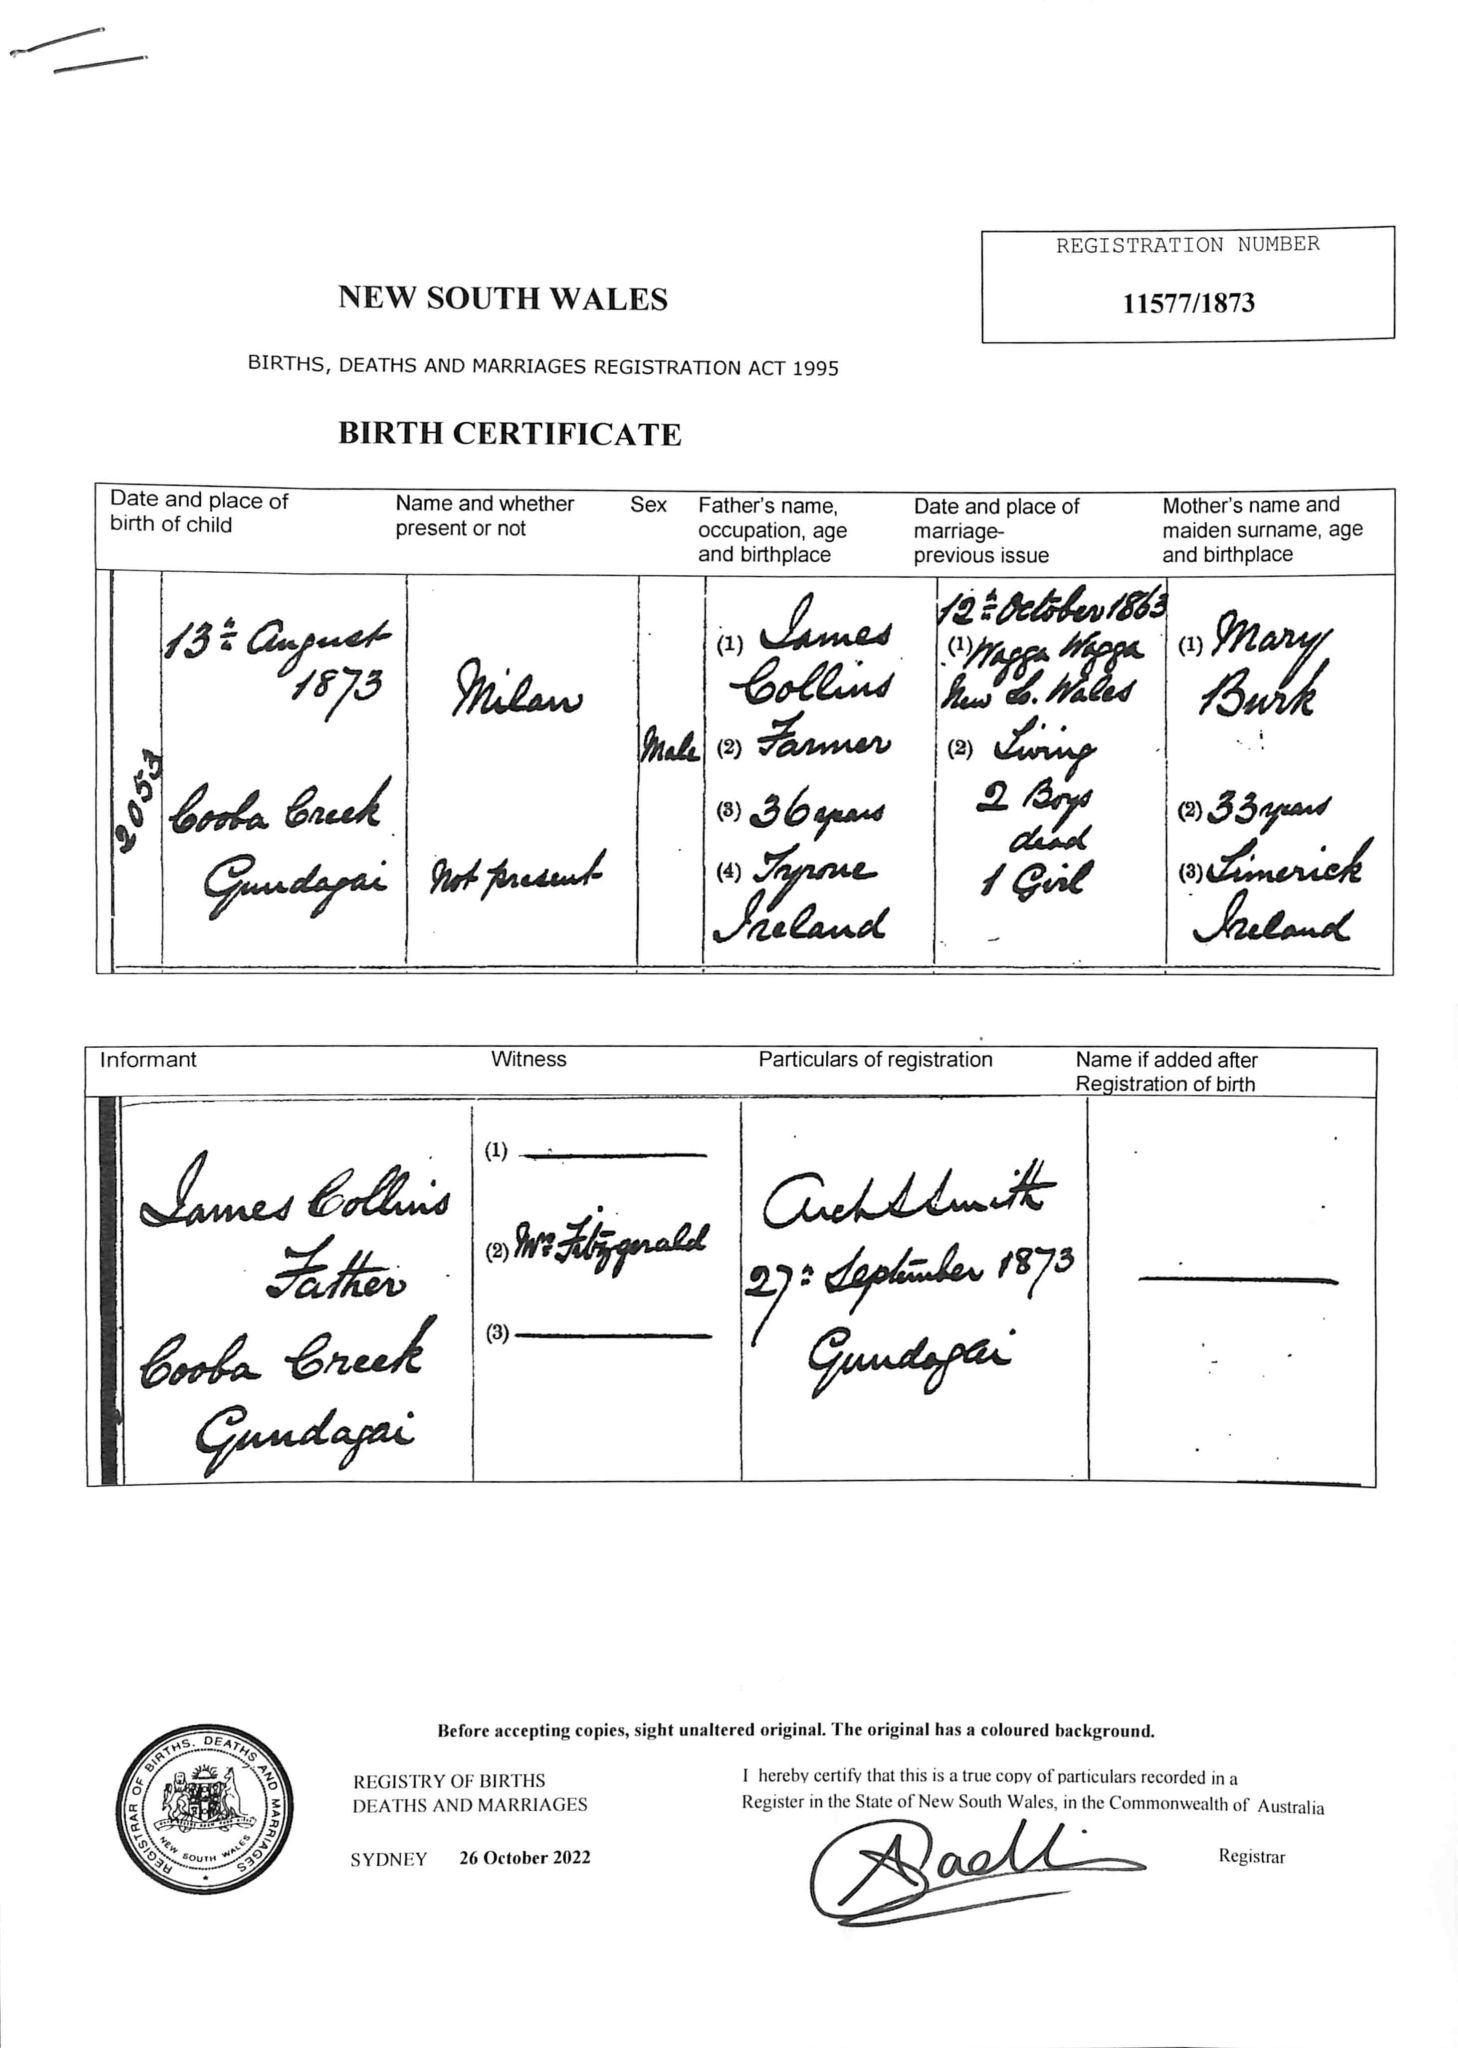 REGISTRATION NUMBER
11577/1873
NEW SOUTH WALES
BIRTHS, DEATHS AND MARRIAGES REGISTRATION ACT 1995
BIRTH CERTIFICATE
Date and place of
birth of child
Name and whether
present or not
Sex
Father's name,
occupation, age
and birthplace
Date and place of
marriage-
previous issue
Mother's name and
maiden surname, age
and birthplace
2053
13th August
1873
Cooba Creek
Gundagai
Milan
Not present
Male
(1) James
Collins
(2) Farmer
(3) 36 years
(4) Tyrone
Ireland
12th October 1863
(1) Wagga Wagga
New S. Wales
(2) Living
2 Boys
dead
1 Girl
(1) Mary
Burk
(2) 33 years
(3) Limerick
Ireland
Informant
Witness
Particulars of registration
Name if added after
Registration of birth
James Collins
Father
Cooba Creek
Gundagai
(1)
(2) Mrs Fitzgerald
(3)
Arch S Smith
27th September 1873
Gundagai
Before accepting copies, sight unaltered original. The original has a coloured background.
REGISTRAR OF BIRTHS, DEATHS AND MARRIAGES
NEW SOUTH WALES
REGISTRY OF BIRTHS
DEATHS AND MARRIAGES
SYDNEY 26 October 2022
I hereby certify that this is a true copy of particulars recorded in a
Register in the State of New South Wales, in the Commonwealth of Australia
Registrar